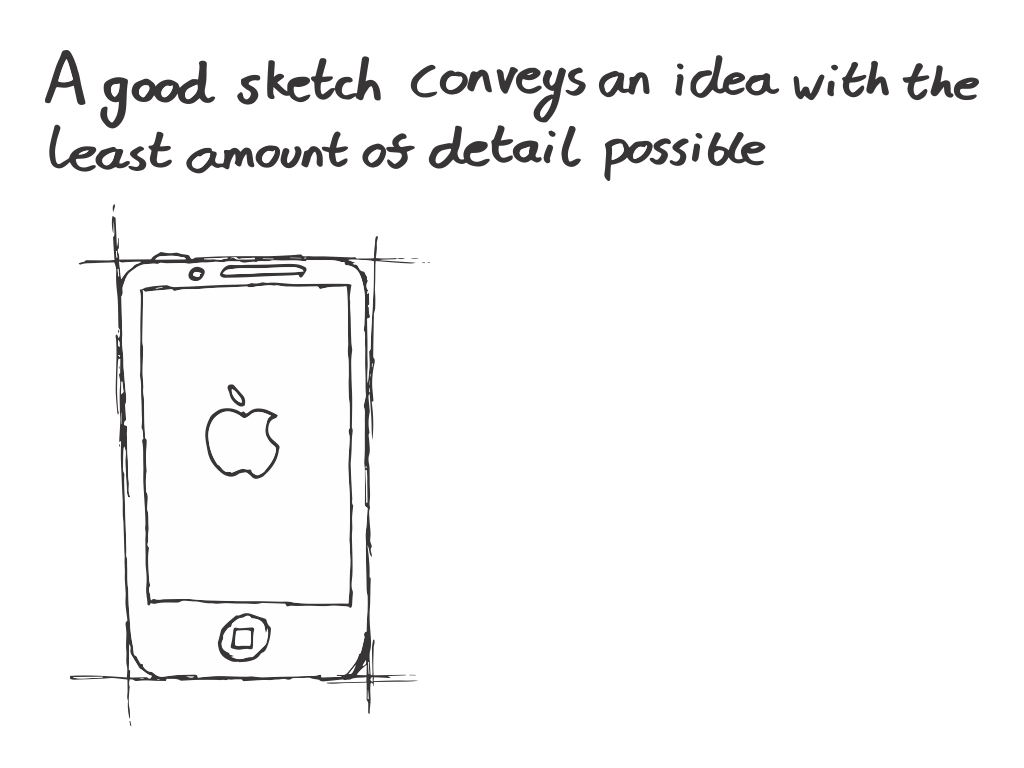 A good sketch conveys an idea with the
least amount of detail possible